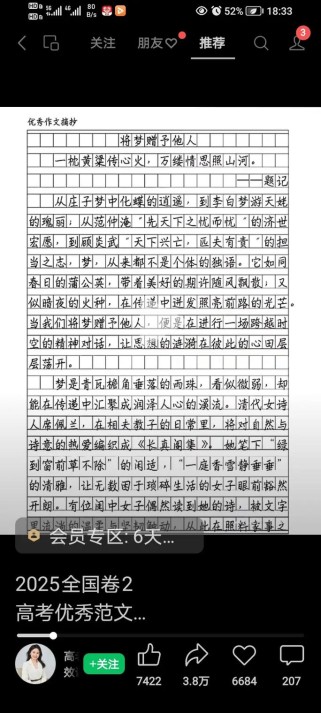 HD 5G 5G 80 B/s 52% 18:33
关注 朋友♡ 推荐 3
优秀作文摘抄
将梦赠予他人
一枕黄粱传心火，万缕情思照山河。
——题记
从庄子梦中化蝶的逍遥，到李白梦游天姥
的瑰丽；从范仲淹“先天下之忧而忧”的济世
宏愿，到顾炎武“天下兴亡，匹夫有责”的担
当之志，梦，从来都不是个体的独语。它如同
春日的蒲公英，带着美好的期许随风飘散；又
似暗夜的火种，在传递中迸发照亮前路的光芒。
当我们将梦赠予他人，便是在进行一场跨越时
空的精神对话，让思想的涟漪在彼此的心田层
层荡开。
梦是青瓦檐角垂落的雨珠，看似微弱，却
能在传递中汇聚成润泽人心的溪流。清代女诗
人席佩兰，在相夫教子的日常里，将对自然与
诗意的热爱编织成《长真阁集》。她笔下“绿
到窗前草不除”的闲适，“一庭香雪静垂垂”
的清雅，让无数囿于琐碎生活的女子眼前豁然
开朗。有位闺中女子偶然读到她的诗，被文字
触动，从此在照料家事之
会员专区: 6天...
2025全国卷2
高考优秀范文...
高
效
+关注
7422 3.8万 6684 207